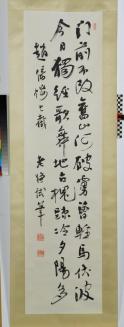 門前不改舊山河破虜曾輕馬伏波
今日獨經歌舞地古槐疎冷夕陽多
趙
筆